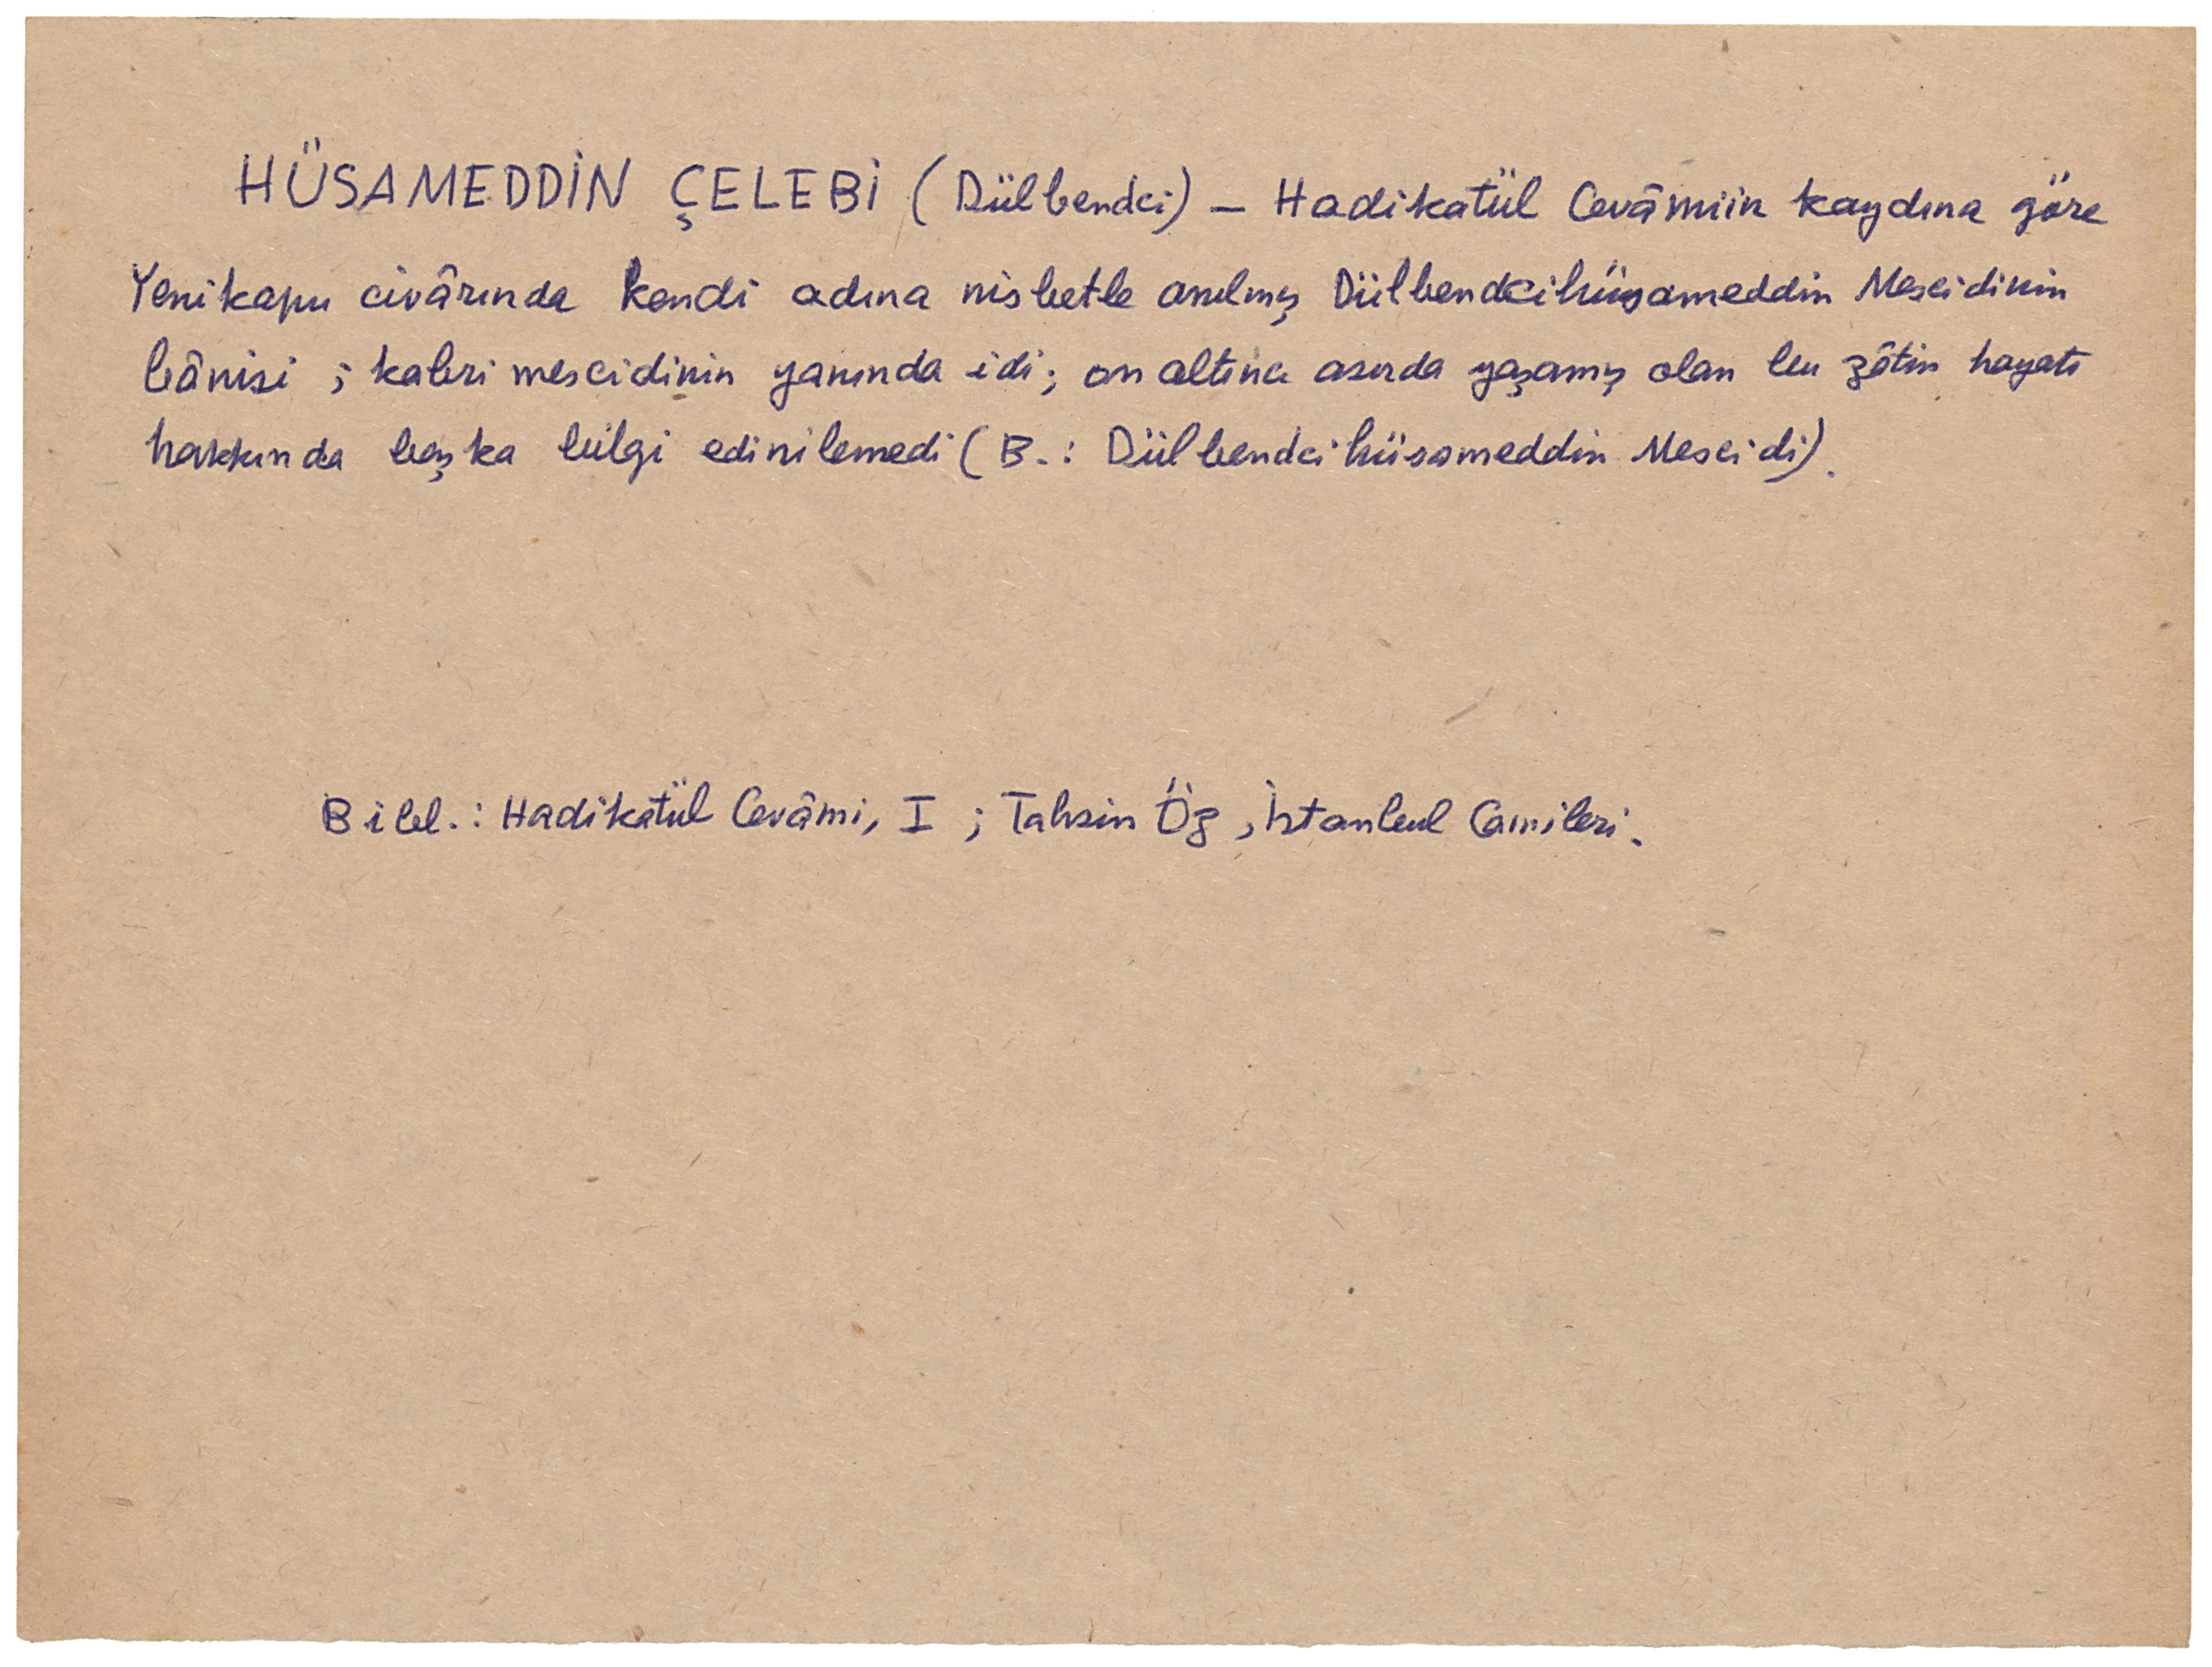 HÜSAMEDDİN ÇELEBİ (Dülbendci) — Hadikatül Cevâmiin kaydına göre
Yenikapu civârında kendi adına nisbetle anılmış Dülbendcihüsameddin Mescidinin
bânisi ; kabri mescidinin yanında idi; on altıncı asırda yaşamış olan bu zâtin hayatı
hakkında başka bilgi edinilemedi (B.: Dülbendcihüsameddin Mescidi).
Bibl.: Hadikatül Cevâmi, I ; Tahsin Öz, İstanbul Camileri.